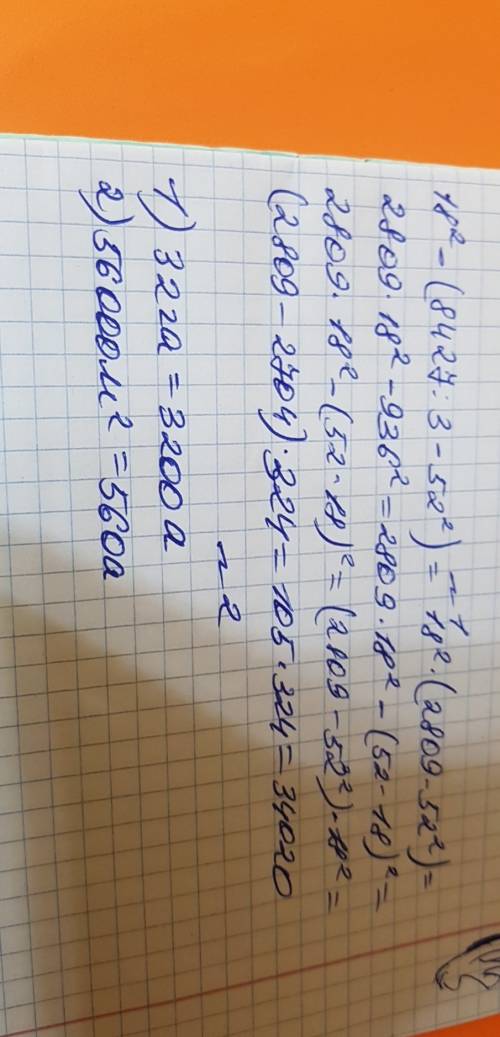 ~1
18² - (8427 : 3 - 52²) = 18² · (2809 - 52²) =
2809 · 18² - 936² = 2809 · 18² - (52 · 18)² =
2809 · 18² - (52 · 18)² = (2809 - 52²) · 18² =
(2809 - 2704) · 324 = 105 · 324 = 34020
~2
1) 32га = 3200а
2) 56000м² = 560а